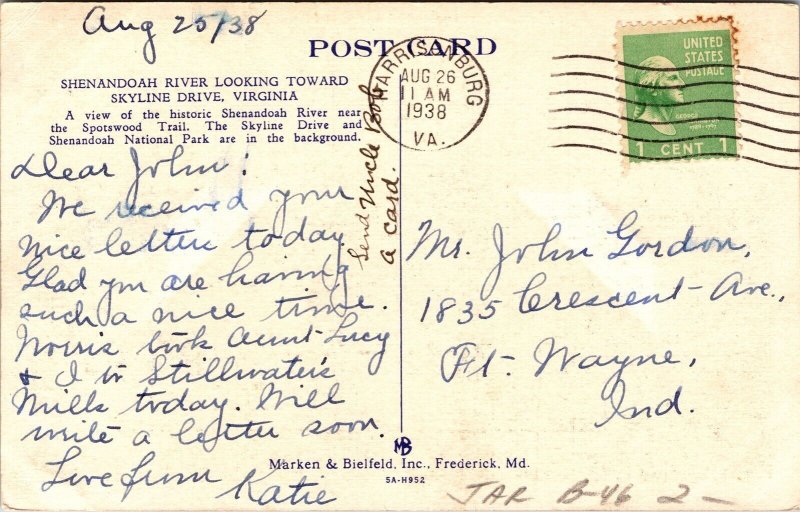 Aug 25/38
POST CARD
SHENANDOAH RIVER LOOKING TOWARD
SKYLINE DRIVE, VIRGINIA
A view of the historic Shenandoah River near
the Spotswood Trail. The Skyline Drive and
Shenandoah National Park are in the background.
Dear John:
We received your
nice letter today.
Glad you are having
such a nice time.
Norris took Aunt Lucy
& I to Stillwater's
Mills today. Will
write a letter soon.
Love from
Katie
Send Uncle Bob
a card.
HARRISONBURG
AUG 26
11 AM
1938
VA.
UNITED
STATES
POSTAGE
GEORGE
1 CENT 1
Mr. John Gordon,
1835 Crescent Ave.,
Ft. Wayne,
Ind.
MB
Marken & Bielfeld, Inc., Frederick, Md.
5A-H952
JAR B-46 2-